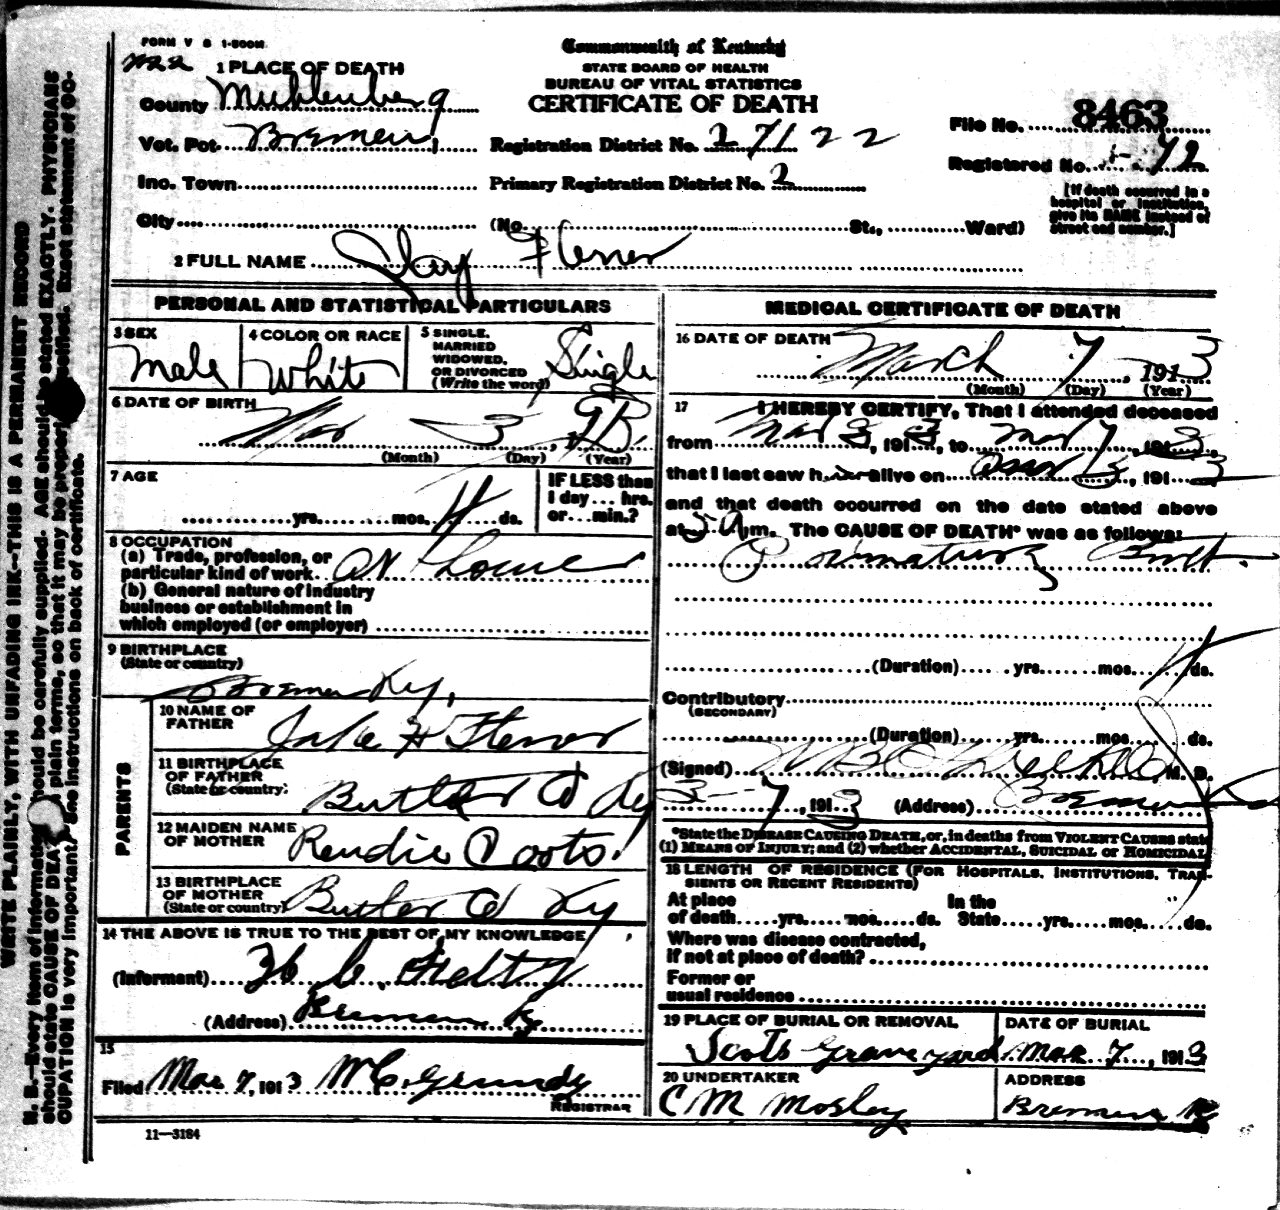 FORM V S 1-500M
Commonwealth of Kentucky
STATE BOARD OF HEALTH
BUREAU OF VITAL STATISTICS
CERTIFICATE OF DEATH
1 PLACE OF DEATH
County Muhlenberg
Vot. Pct. Bremen
Inc. Town
City
Registration District No. 27122
Primary Registration District No. 2
(No. St., Ward)
File No. 8463
Registered No. 72
[If death occurred in a
hospital or institution,
give its NAME instead of
street and number.]
2 FULL NAME Jay Flener
PERSONAL AND STATISTICAL PARTICULARS
3 SEX
Male
4 COLOR OR RACE
White
5 SINGLE,
MARRIED
WIDOWED,
OR DIVORCED
(Write the word) Single
6 DATE OF BIRTH
Mar 3
(Month) (Day) (Year)
7 AGE
yrs. mos. 4 ds.
IF LESS than
1 day ... hrs.
or ... min.?
8 OCCUPATION
(a) Trade, profession, or
particular kind of work At home
(b) General nature of industry
business or establishment in
which employed (or employer)
9 BIRTHPLACE
(State or country)
Bremen Ky.
PARENTS
10 NAME OF
FATHER
Jake H Flenor
11 BIRTHPLACE
OF FATHER
(State or country)
Butler Co Ky
12 MAIDEN NAME
OF MOTHER
Rendie Coots
13 BIRTHPLACE
OF MOTHER
(State or country)
Butler Co Ky
14 THE ABOVE IS TRUE TO THE BEST OF MY KNOWLEDGE
(Informant)
(Address) Bremen Ky
15
Filed Mar 7, 1913 W C. Grundy
REGISTRAR
11—3184
MEDICAL CERTIFICATE OF DEATH
16 DATE OF DEATH
March 7, 1913
(Month) (Day) (Year)
17 I HEREBY CERTIFY, That I attended deceased
from Mar 3, 1913, to Mar 7, 1913,
that I last saw him alive on 3, 1913
and that death occurred on the date stated above
at 5 A m. The CAUSE OF DEATH* was as follows:
Premature Birth.
(Duration) yrs. mos. 4 ds.
Contributory
(SECONDARY)
(Duration) yrs. mos. ds.
(Signed) M. D.
3-7, 1913 (Address) Bremen
*State the DISEASE CAUSING DEATH, or, in deaths from VIOLENT CAUSES state
(1) MEANS OF INJURY; and (2) whether ACCIDENTAL, SUICIDAL or HOMICIDAL
18 LENGTH OF RESIDENCE (FOR HOSPITALS, INSTITUTIONS, TRAN-
SIENTS OR RECENT RESIDENTS)
At place In the
of death yrs. mos. ds. State yrs. mos. ds.
Where was disease contracted,
if not at place of death?
Former or
usual residence
19 PLACE OF BURIAL OR REMOVAL
Scots Graveyard
DATE OF BURIAL
Mar 7, 1913
20 UNDERTAKER
C M Mosley
ADDRESS
Bremen Ky